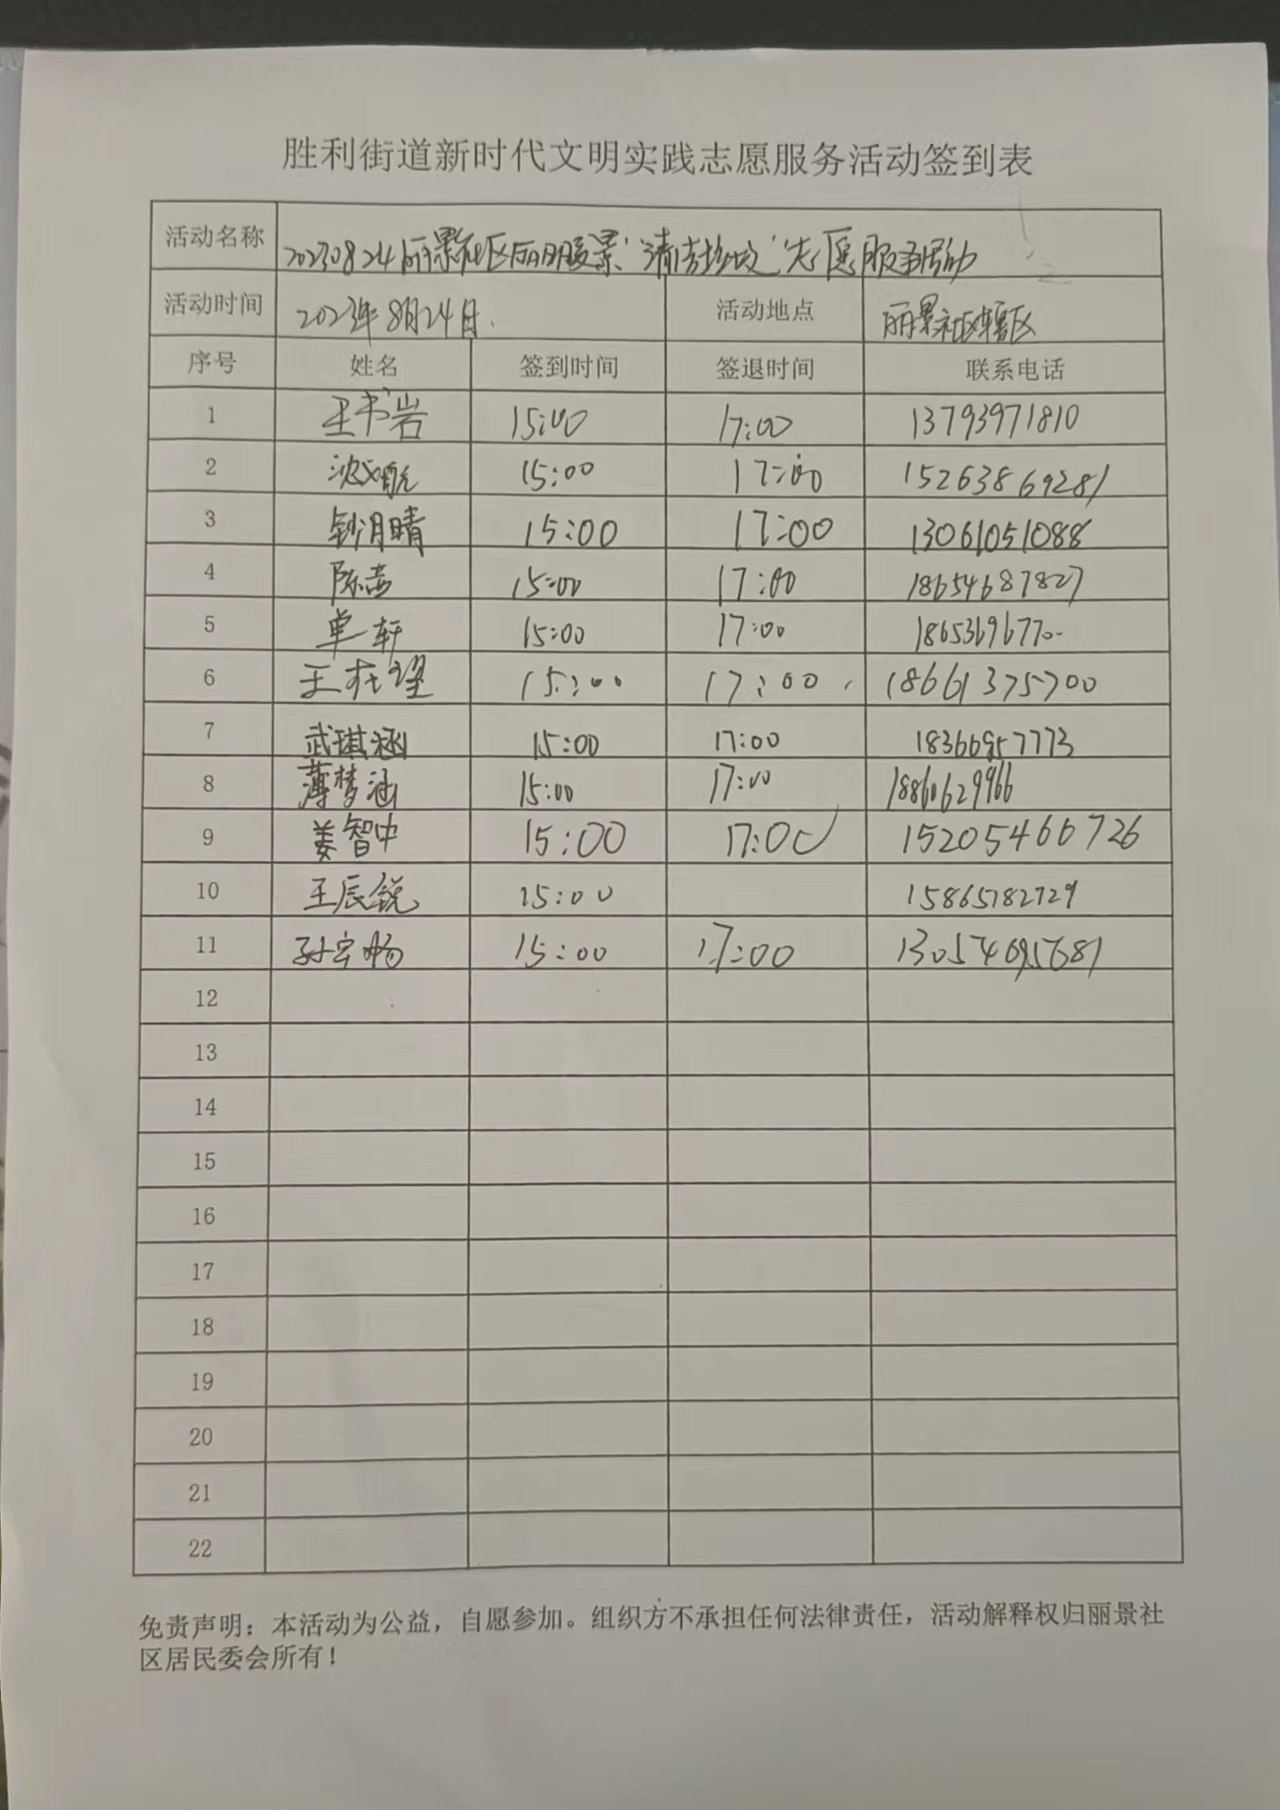 胜利街道新时代文明实践志愿服务活动签到表
活动名称 20230824丽景社区 志愿服务活动
活动时间 2023年8月24日. 活动地点 丽景社区辖区
序号 姓名 签到时间 签退时间 联系电话
1 王书岩 15:00 17:00 13793971810
2 15:00 17:00 15263869281
3 15:00 17:00 13061051088
4 陈茜 15:00 17:00 18654687827
5 单轩 15:00 17:00
6 15:00 17:00 18661375700
7 武琪涵 15:00 17:00
8 薄梦涵 15:00 17:00
9 姜智中 15:00 17:00 15205466726
10 王辰锐 15:00 15865782729
11 15:00 17:00
12
13
14
15
16
17
18
19
20
21
22
免责声明：本活动为公益，自愿参加。组织方不承担任何法律责任，活动解释权归丽景社
区居民委会所有！